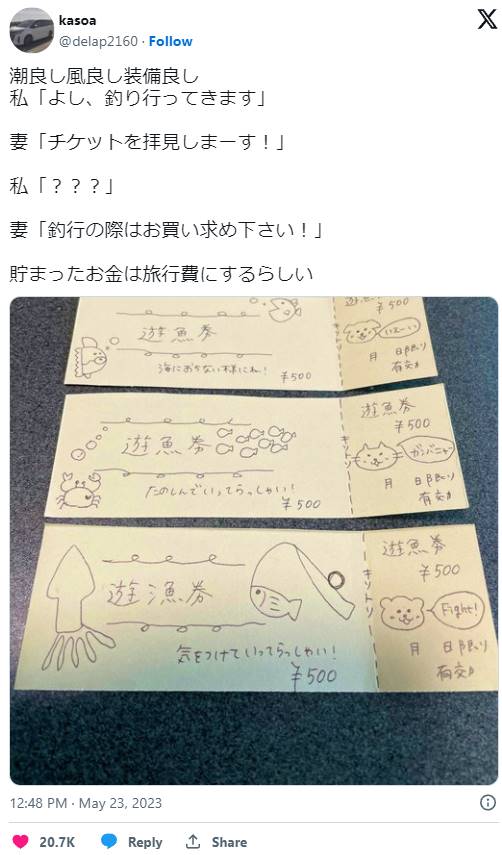 kasoa
@delap2160 · Follow
X
潮良し風良し装備良し
私「よし、釣り行ってきます」
妻「チケットを拝見しまーす！」
私「？？？」
妻「釣行の際はお買い求め下さい！」
貯まったお金は旅行費にするらしい
遊魚券
海におちない様にね!
¥500
キリトリ
¥500
いえーい
月 日限り
有効
遊魚券
たのしんでいってらっしゃい!
¥500
キリトリ
遊魚券
¥500
ガンバニャー
月 日限り
有効
遊漁券
気をつけていってらっしゃい!
¥500
キリトリ
遊魚券
¥500
Fight!
月 日限り
有効
12:48 PM · May 23, 2023
20.7K Reply Share